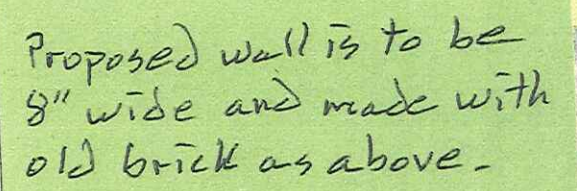 Proposed wall is to be
8" wide and made with
old brick as above.